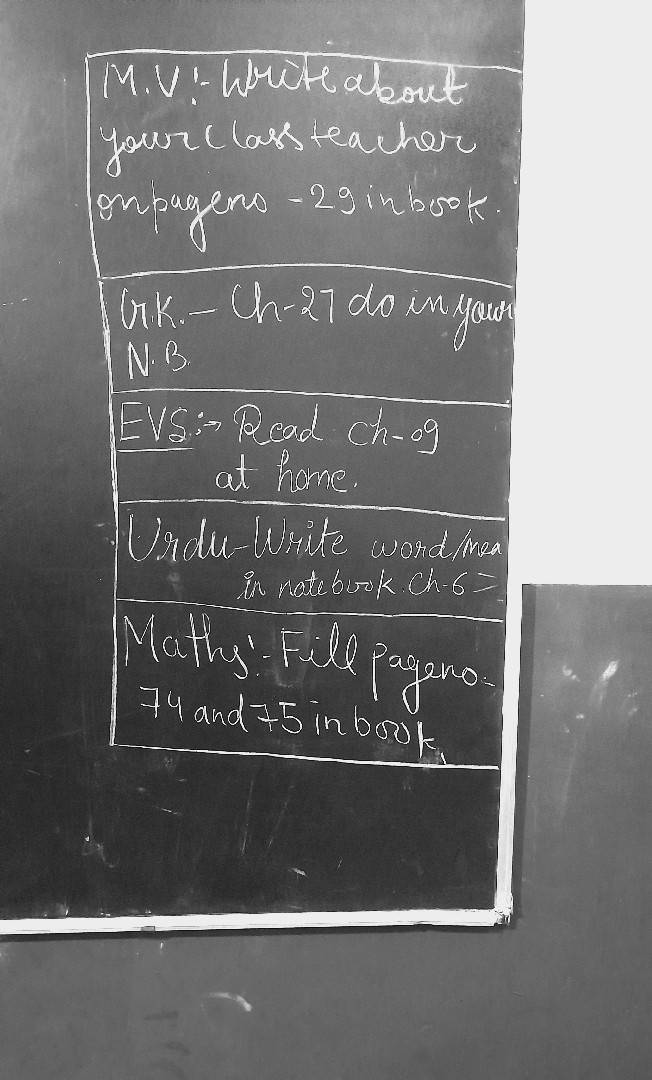 M.V:- Write about
your class teacher
on page no - 29 in book.
G.K. - Ch-27 do in your
N.B.
EVS:→ Read ch-09
at home.
Urdu-Write word/mea
in notebook. Ch-6
Maths:- Fill page no-
74 and 75 in book.